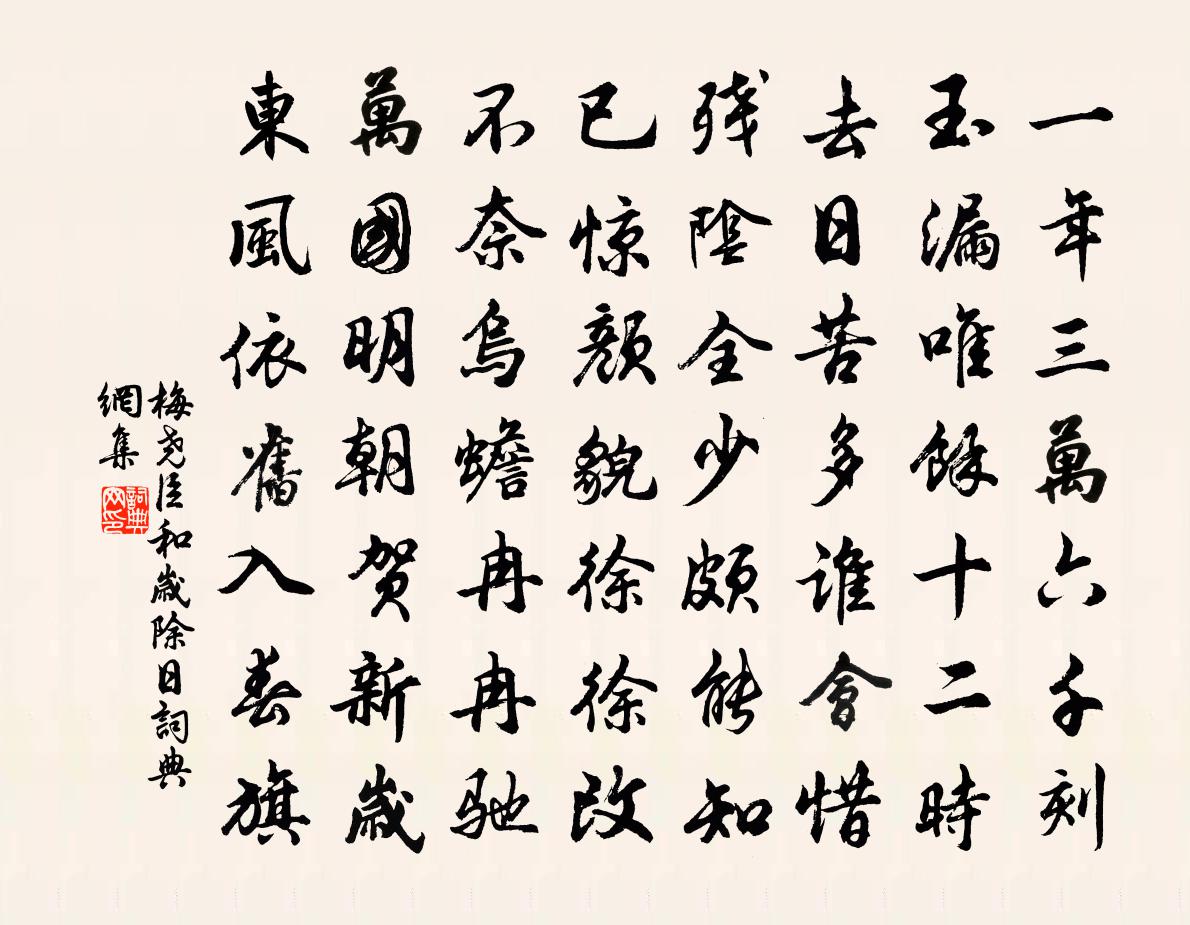 一年三萬六千刻
玉漏唯餘十二時
去日苦多誰會惜
残陰全少頗能知
已惊顏貌徐徐改
不奈烏蟾冉冉驰
萬國明朝贺新歲
東風依舊入春旗
梅尧臣和歲除日詞典
網集
詞典
网印